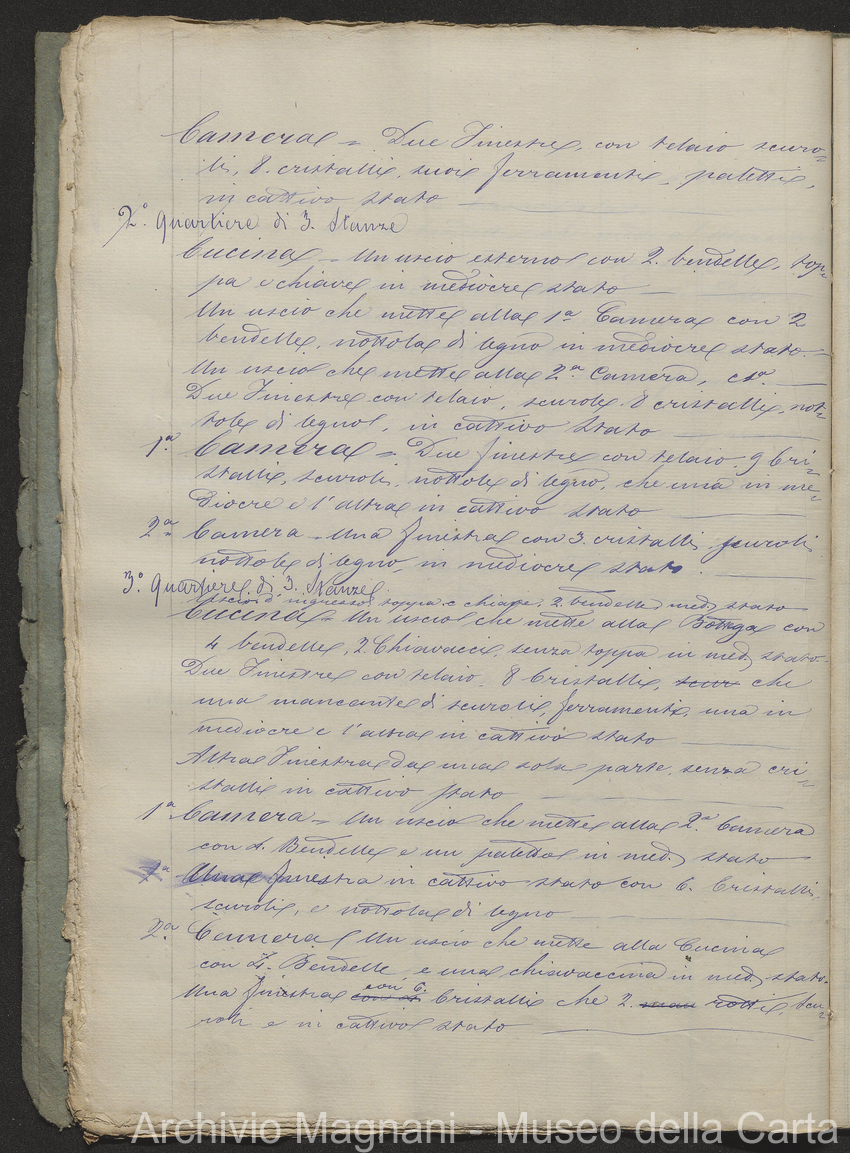 Camera = Due Finestre, con telaio scuro=
li, 8. cristalli, suoi ferramenti, paletti,
in cattivo stato
2.° Quartiere di 3. Stanze
Cucina = Un uscio esterno con 2. bendelle, top=
pa e chiave in mediocre stato
Un uscio che mette alla 1ª Camera con 2
bendelle, nottola di legno in mediocre stato.=
Un uscio che mette alla 2.ª Camera, csª.
Due Finestre con telaio, scurole 8 cristalli, not=
tole di legno, in cattivo stato
1.ª Camera = Due finestre con telaio 9 Cri=
stalli, scuroli, nottole di legno, che una in me=
diocre e l'altra in cattivo stato
2.ª Camera = Una finestra con 3. cristalli, scuroli
nottole di legno, in mediocre stato.
3.° Quartiere di 3. Stanze
Uscio d'ingresso toppa e chiave, 2. bendelle med. stato
Cucina = Un uscio che mette alla Bottega con
4 bendelle, 2. Chiavacci, senza toppa in med. stato.
Due Finestre con telaio, 8 Cristalli, scur che
una mancante di scuroli, ferramenti, una in
mediocre e l'altra in cattivo stato
Altra Finestra da una sola parte, senza cri=
stalli in cattivo stato
1.ª Camera = Un uscio che mette alla 2.ª Camera
con 2. Bendelle e un paletto in med. stato
Una finestra in cattivo stato con 6. Cristalli,
scuroli, e nottola di legno
2.ª Camera Un uscio che mette alla Cucina
con 2. Bendelle, e una chiavaccina in med. stato.
Una finestra con 6. Cristalli che 2. rotti, scu=
roli e in cattivo stato
Archivio Magnani - Museo della Carta